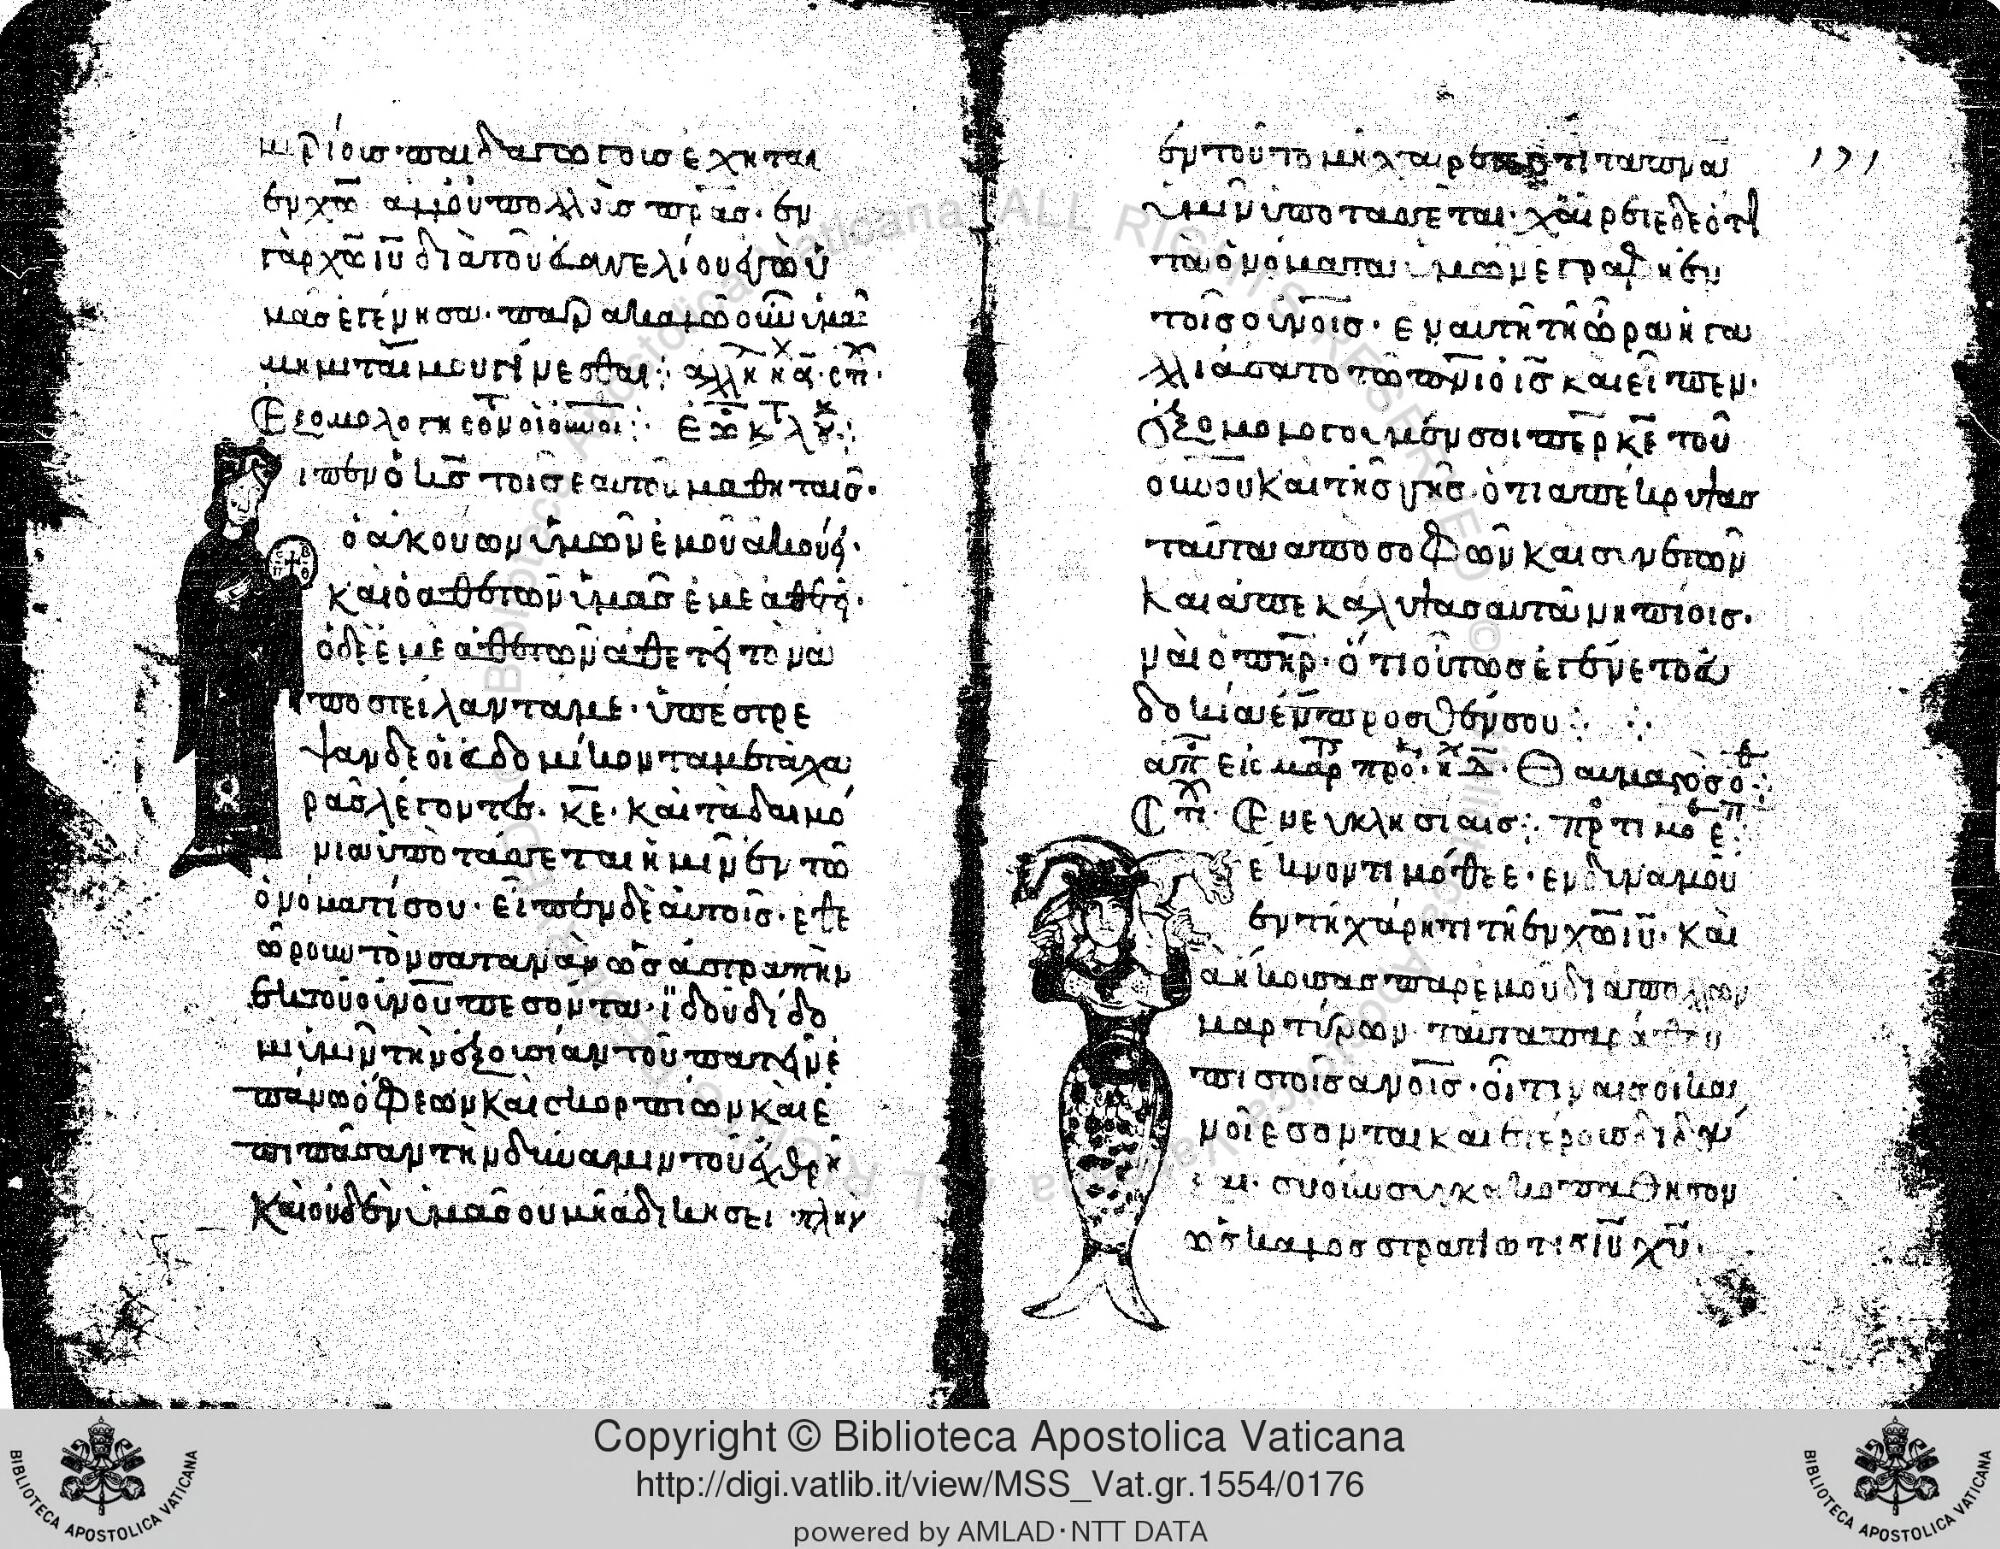 μυρίοις παιδαγωγοὺς ἔχηται
ἐν χω ἀλλ οὐ πολλοὺς πρας· ἐν
γὰρ χω ιυ διὰ τοῦ εὐαγγελίου ἐγὼ ὑ
μᾶς ἐγένησα· παρακαλῶ οὖν ὑμᾶς
μιμιταί μου γίνεσθαι
Ἐξομολογήσον οἱ οὐνοι
ιπεν ὁ κς τοῖς ἑαυτοῦ μαθηταῖς·
ὁ ἀκούων ὑμῶν ἐμοῦ ἀκούει·
καὶ ὁ ἀθετῶν ὑμᾶς ἐμὲ ἀθετεῖ·
ὁ δὲ ἐμὲ ἀθετῶν ἀθετεῖ τὸν ἀ
ποστείλαντα με· ὑπέστρε
ψαν δε οἱ εβδομίκοντα μετὰ χα
ρᾶς λέγοντες· κε· καὶ τὰ δαιμό
νια ὑποτάσσεται ἡμῖν ἐν τῶ
ὀνόματί σου· εἶπεν δὲ αὐτοῖς· εθε
ώρουν τὸν σατανᾶν ὡς ἀστραπὴν
ἐκ τοῦ οὐνοῦ πεσόντα· ἰδοὺ δίδο
μι ὑμῖν τὴν ἐξουσίαν τοῦ πατεῖν ἐ
πάνω ὄφεων καὶ σκορπίων καὶ ἐ
πὶ πᾶσαν τὴν δύναμιν τοῦ ἐχθροῦ
καὶ οὐδὲν ὑμᾶς οὐ μὴ ἀδικήσει· πλὴν
ἐν τούτο μὴ χαίρετε ὅτι τὰ πνα
ὑμῖν ὑποτάσσεται· χαίρετε δὲ ὅτι
τὰ ὀνόματα ὑμῶν ἐγράφη ἐν
τοῖς οὐνοις· ἐν αὐτῆ τῆ ὥρα ἠγα
λλιάσατο τῶ πνι ὁ ις καὶ εἶπεν·
Ἐξομολογοῦμέν σοι περ κε τοῦ
οὐνου καὶ τῆς γῆς· ὅτι ἀπέκρυψας
ταῦτα ἀπὸ σοφῶν καὶ συνετῶν
καὶ ἀπεκάλυψας αὐτὰ νηπίοις·
ναὶ ὁ πηρ· ὅτι οὕτως ἐγένετο εὐ
δοκία ἔμπροσθέν σου
Θαυμαστὸς ὁ θ
Ἐν ἐκκλησίαις
εκνον τιμόθεε· ἐνδυναμοῦ
ἐν τῆ χάρητι τῆ ἐν χω ιυ· καὶ
ἃ ἤκουσας παρ ἐμοῦ διὰ πολλῶν
μαρτύρων ταῦτα παράθου
πιστοῖς ανοις· οἵτιναις οικα
νοὶ ἔσονται καὶ ἑτέρους διδάξ
στρατιώτις ιυ χυ·
171
Copyright © Biblioteca Apostolica Vaticana
http://digi.vatlib.it/view/MSS_Vat.gr.1554/0176
powered by AMLAD·NTT DATA
BIBLIOTECA APOSTOLICA VATICANA
BIBLIOTECA APOSTOLICA VATICANA